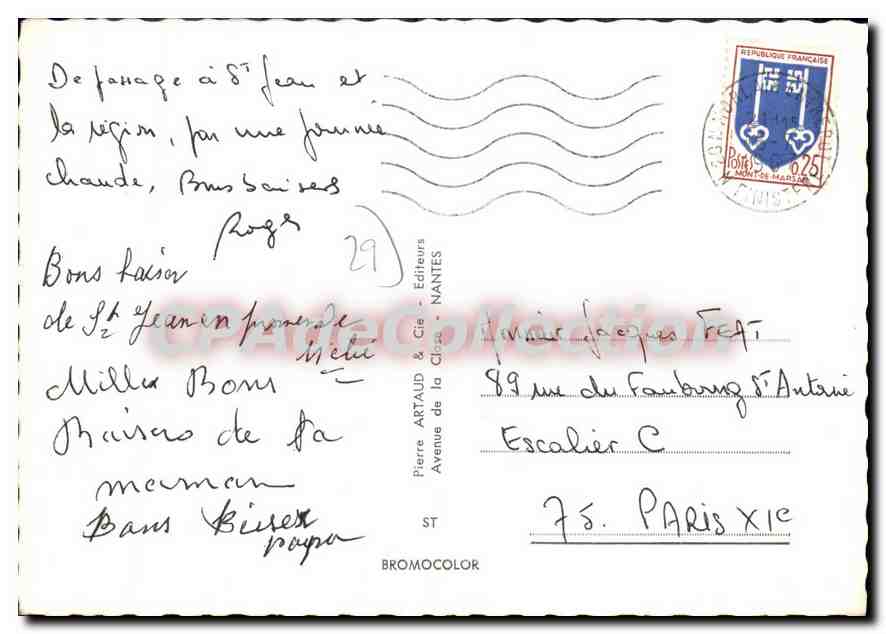 De passage à St Jean et
la région, par une journée
chaude, Bons baisers
Roger
29
Bons baiser
de St Jean en promenade
Méné
Milles Bons
Baisers de ta
maman
Bons Biser
papa
Pierre ARTAUD & Cie - Editeurs
Avenue de la Close - NANTES
ST
BROMOCOLOR
REPUBLIQUE FRANÇAISE
POSTES 0,25
MONT-DE-MARSAN
FINISTERE
Monsieur Jacques FEAT
89 rue du Faubourg St Antoine
Escalier C
75. PARIS XIe
CPAdeCollection